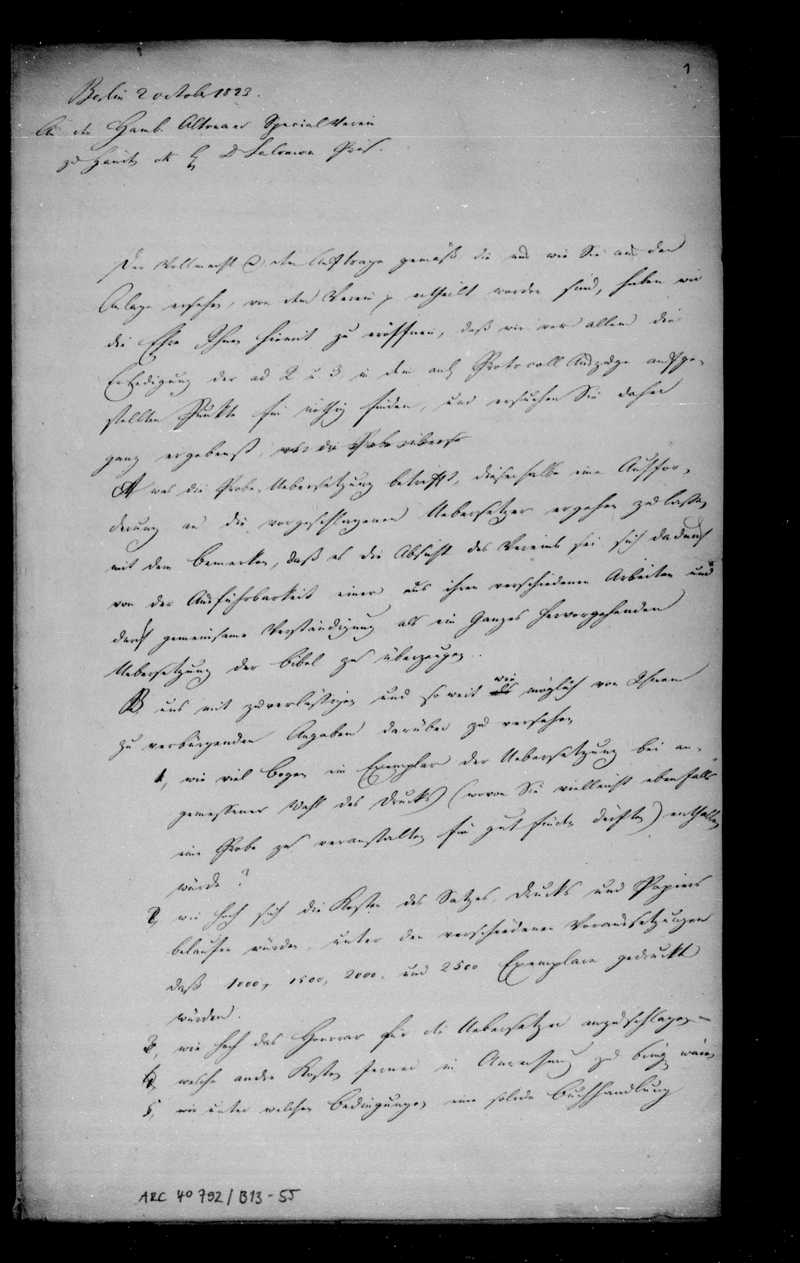 1
Berlin 2 october 1823.
An den Hamb. Altonaer Special Verein
zu Händen des H D Salomon Präs.
Der Vollmacht & dem Auftrage gemäß, die uns wie Sie aus der
Anlage ersehen, von dem Verein ertheilt worden sind, haben wir
die Ehre Ihnen hiermit zu eröffnen, daß wir vor allem die
Erledigung der ad 2 u 3 in dem anl. Protocoll Auszuge aufge-
stellten Punkte für nöthig finden, und ersuchen Sie daher
ganz ergebenst, was die Probe
A was die Probe-Uebersetzung betrifft, dieserhalb eine Auffor-
derung an die vorgeschlagenen Uebersetzer ergehen zu lassen
mit dem Bemerken, daß es die Absicht des Vereins sei sich dadurch
von der Ausführbarkeit einer aus ihren verschiedenen Arbeiten und
durch gemeinsame Verständigung als ein Ganzes hervorgehenden
Uebersetzung der Bibel zu überzeugen.
B uns mit zuverlässigen und soweit wie möglich von Ihnen
zu verbürgenden Angaben darüber zu versehen
1, wie viel Bogen ein Exemplar der Uebersetzung bei an-
gemessener Wahl des Drucks (wovon Sie vielleicht ebenfalls
eine Probe zu veranstalten für gut finden dürften) enthalten
würde?
2, wie hoch sich die Kosten des Satzes, Drucks und Papiers
belaufen würden, unter den verschiedenen Voraussetzungen
daß 1000, 1500, 2000. und 2500 Exemplare gedruckt
würden.
3, wie hoch das Honorar für die Uebersetzer anzuschlagen
4, welche andre Kosten ferner in Anrechnung zu bring wären
5, wie unter welchen Bedingungen eine solide Buchhandlung
ARC 4° 792 / B13 - 55